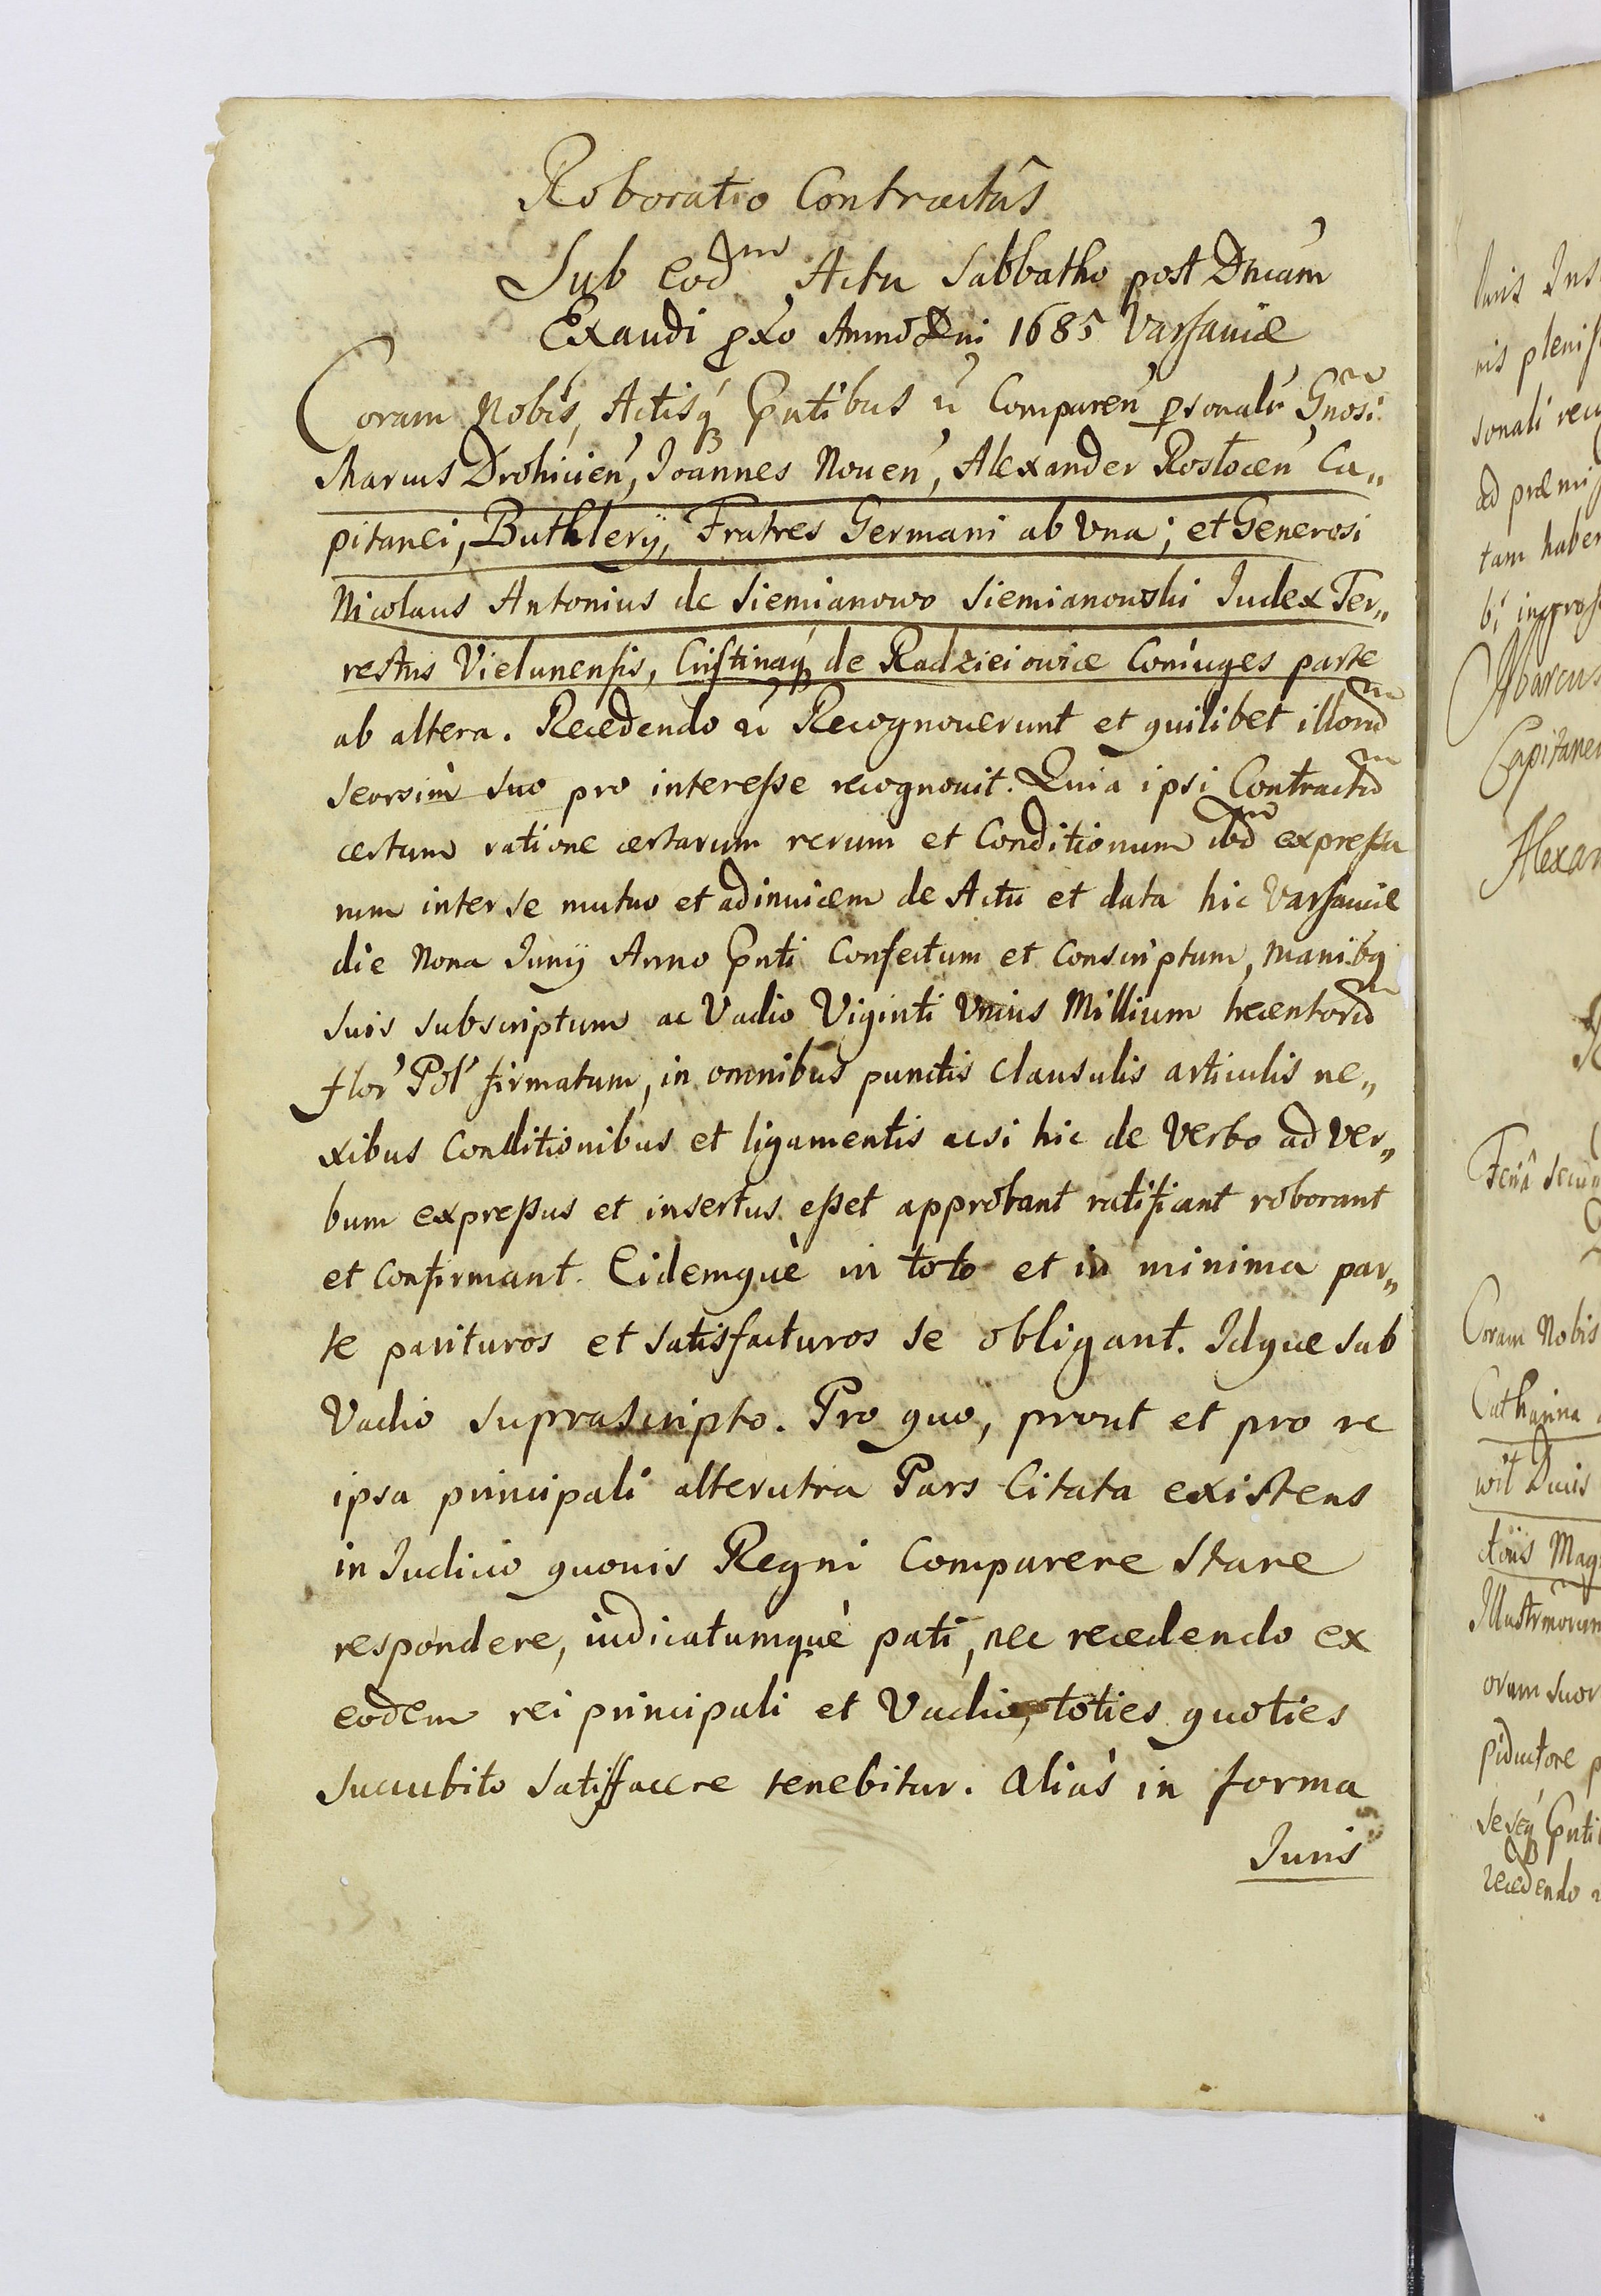 Roboratio Contractûs
Sub Eodm Actu Sabbatho post Dnicam
Exandi pxo Anno Dni 1685 Varsaviæ
Coram Nobis, Actisq Pntibus &c Comparen psonalr Gnosi
Marcus Drohicien, Joannes Noven, Alexander Rostocen Ca„
pitanei, Buthlery, Fratres Germani ab Vna; et Generosi
Nicolaus Antonius de Siemianowo Siemianowski Judex Ter„
restris Vielunensis, Cristinaq de Radzieiowice Coniuges parte
ab altera. Recedendo &c Recognoverunt et quilibet illorum
seorsim suo pro interesse recognovit. Quia ipsi Contractum
certum ratione certarum rerum et Conditionum ibd expressa
rum inter se mutuo et adinvicem de Actu et data hic Varsaviæ
die Nona Junij Anno Pnti Confectum et Conscriptum, manibq
suis subscriptum ac Vadio Viginti Vnius Millium trecentorum
flor Pol firmatum, in omnibus punctis Clausulis articulis ne„
xibus Conditionibus et ligamentis acsi hic de Verbo ad Ver„
bum expressus et insertus esset approbant ratificant roborant
et Confirmant. Eidemquè in toto et in minima par„
te parituros et satisfacturos se obligant. Idque sub
Vadio suprascripto. Pro quo, prout et pro re
ipsa principali alterutra Pars Citata existens
in Judicio quovis Regni Comparere Stare
respondere, iudicatumquè pati, nec recedendo ex
eodem rei principali et Vadio, toties quoties
succubito satisfacere tenebitur. Aliàs in forma
Juris